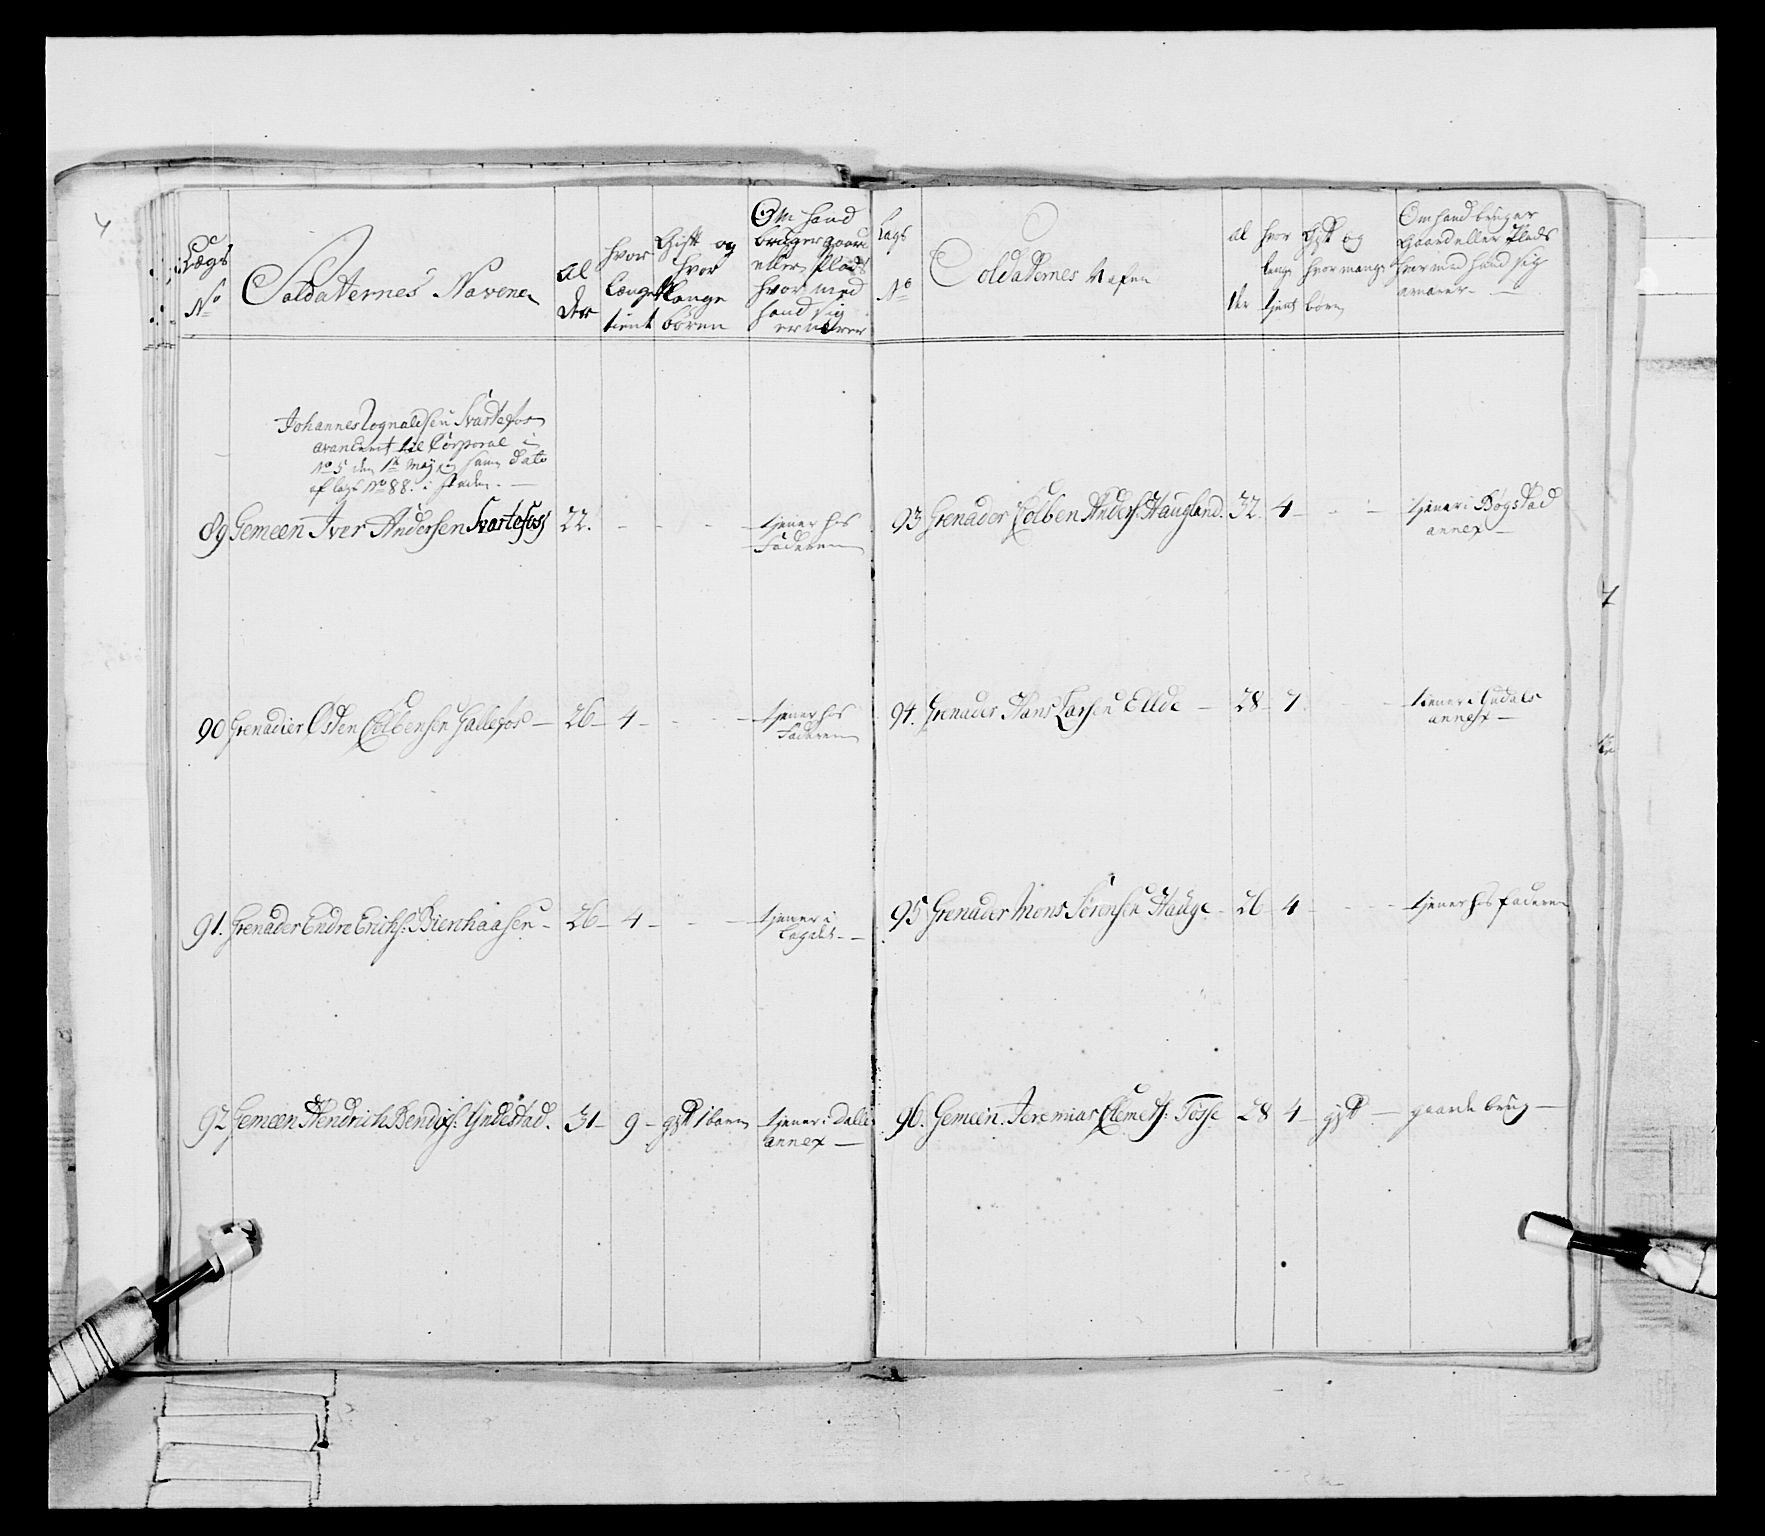 Lægs
No
Soldaternes Navene
Al
der
hvor
længe
tient
Gift og
hvor
mange
børen
Om hand
bruger gaard
eller Plads
hvor med
hand sig
ernærer
Johannes Rognaldsen Svartefos
avancerit til Corporal i
No 5 den 1te May og samme dato
af legt No 88. i steden.
89 Gemeen Iver Andersen Svartefoss 22. - - - tjener his
Faderen
90 Grenadier Osten Colbensen Gallefos - 26 - 4 - - - tjener his
Faderen
91. Grenader Endre Erichs: Birchaasen - 26 - 4 - - - tjener i
Lægdet -
92 Gemeen Hendrich Bendixs: Yndestad. 31 - 9 - gift 1 barn tjener i Dalle
annex -
Lægs
No
Soldaternes Nafne
Al
der
hvor
lenge
tjent
Gift og
hvor mange
børn
Om hand bruger
Gaard eller Plads
hvor med hand sig
ernærer -
93 Grenader Colben Anders: Haugland. 32. 4 - - - tjener i Bogstad
annex -
94. Grenader Hans Larsen Ellde - 28 - 7 - tiener i Gudals
annex -
95 Grenader Mons Sørensen Hauge - 26 - 4 - - - tjener his faderen
96. Gemein Jeremias Clemets: Tøsse 28 4 - gift - gaarde brug -